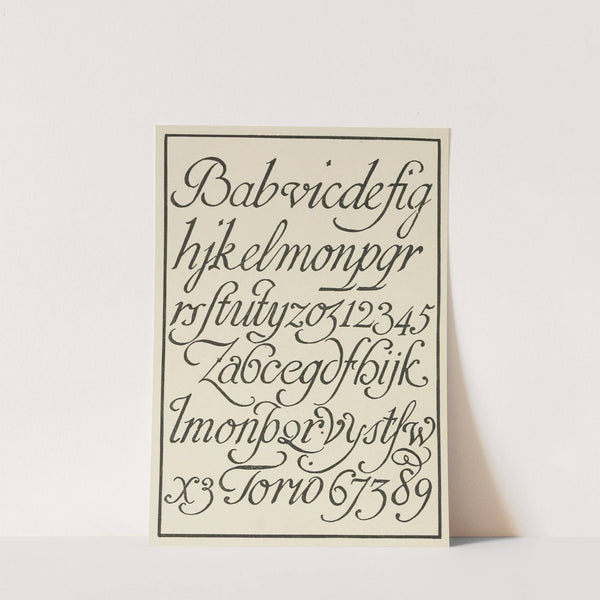 Babvicdefig
hjkelmonpqr
rsſtutyzoz12345
Zabcegdfhijk
lmonpqr.vystſw
x3 Torio 67389